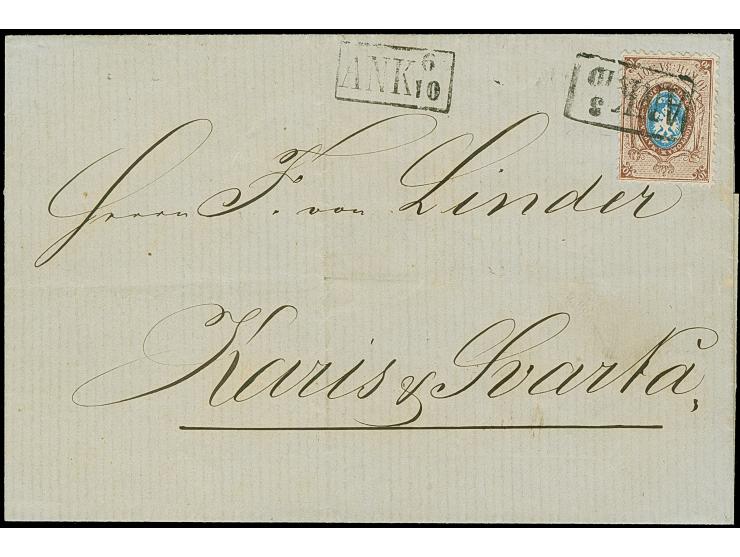 ANK 6/10
Herrn F. von Linder
Karis & Svartå,